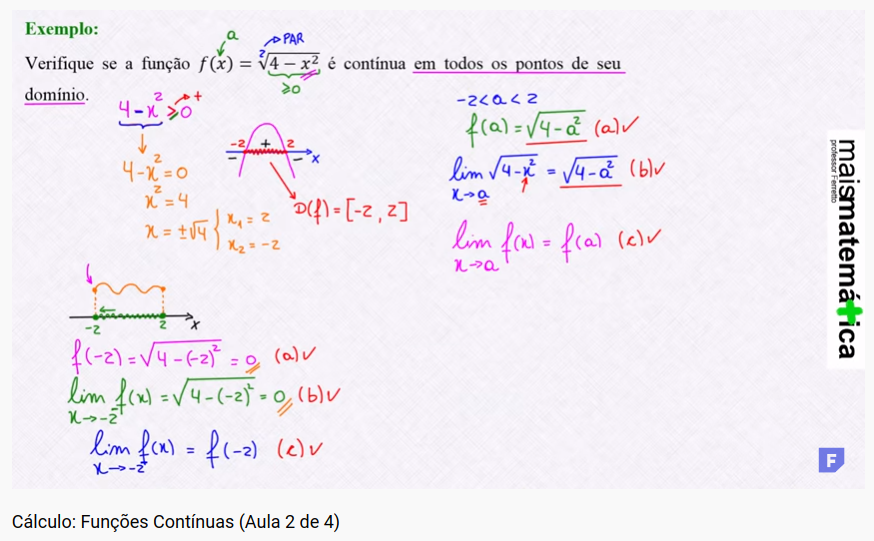 Exemplo:
a
PAR
Verifique se a função f(x) = ²√(4 − x²) é contínua em todos os pontos de seu
domínio.
≥0
4-x² ≥ 0
+
4-x² = 0
x² = 4
x = ±√4 { x₁ = 2
x₂ = -2
-2 + 2
− − x
D(f) = [-2, 2]
-2 2 x
f(-2) = √(4-(-2)²) = 0, (a)✓
lim f(x) = √(4-(-2)²) = 0, (b)✓
x→-2⁺
lim f(x) = f(-2) (c)✓
x→-2⁺
-2<a<2
f(a) = √(4-a²) (a)✓
lim √(4-x²) = √(4-a²) (b)✓
x→a
lim f(x) = f(a) (c)✓
x→a
maismatemática
professor Ferretto
F
Cálculo: Funções Contínuas (Aula 2 de 4)